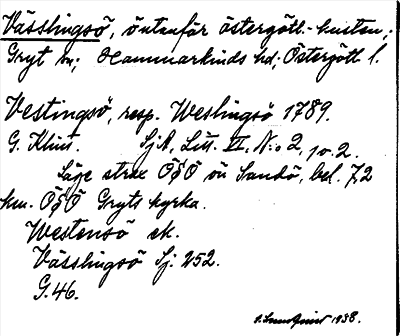 Vässlingsö, öntenför östergötl. kusten;
Gryt sn; Hammarkinds hd; Östergötl l.
Vestingsö, resp. Weslingsö 1789.
G. Klint. SjA, Litt. VI. N:o 2, 1 o. 2.
Läge strax ÖSÖ om Sandö, bel. 7,2
km. ÖSÖ Gryts kyrka.
Westensö ek.
Vässlingsö Sj. 252.
G. 46.
1938.